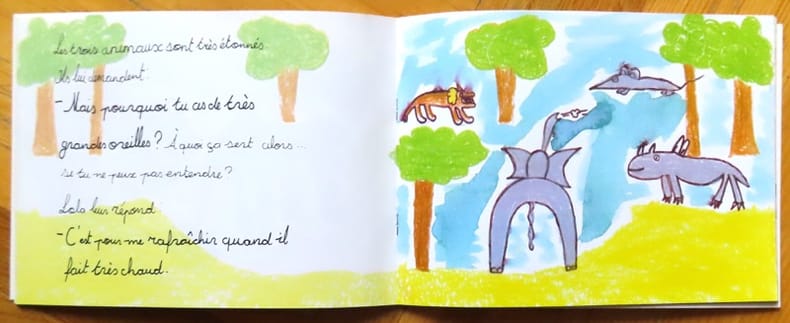 Les trois animaux sont très étonnés.
Ils lui demandent :
- Mais pourquoi tu as de très
grandes oreilles ? À quoi ça sert alors...
si tu ne peux pas entendre ?
Lola leur répond
- C'est pour me rafraîchir quand il
fait très chaud.